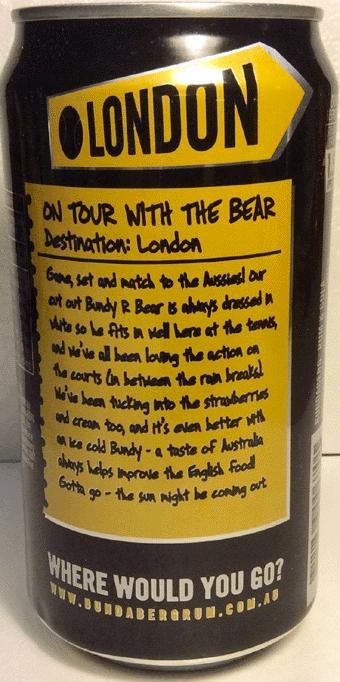 LONDON
ON TOUR WITH THE BEAR
Destination: London
Game, set and match to the Aussies! Our
cut out Bundy R Bear is always dressed in
white so he fits in well here at the tennis,
and we've all been loving the action on
the courts (in between the rain breaks).
We've been tucking into the strawberries
and cream too, and it's even better with
an ice cold Bundy - a taste of Australia
always helps improve the English food!
Gotta go - the sun might be coming out
WHERE WOULD YOU GO?
WWW.BUNDABERGRUM.COM.AU